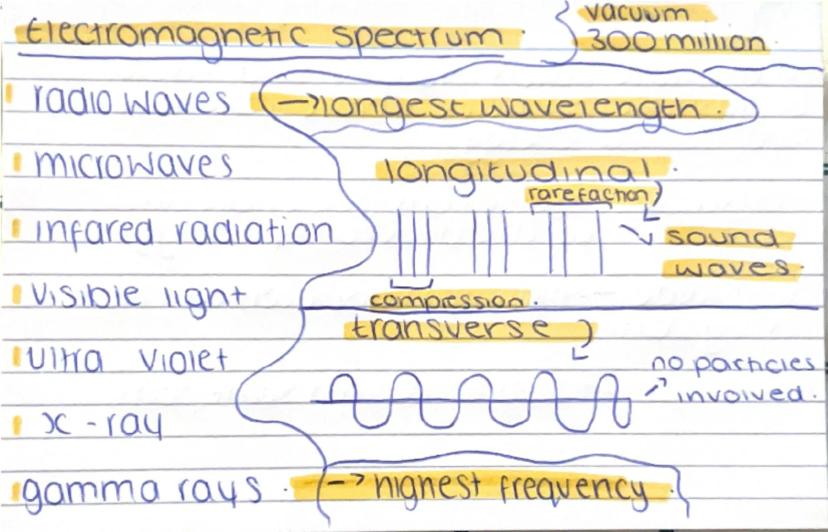 Electromagnetic spectrum.
vacuum
300 million.
radio waves →longest wavelength.
microwaves
longitudinal.
rarefaction
infared radiation
sound
waves.
visible light
compression.
transverse
ultra violet
no particles
involved.
x-ray
gamma rays. →highest frequency.